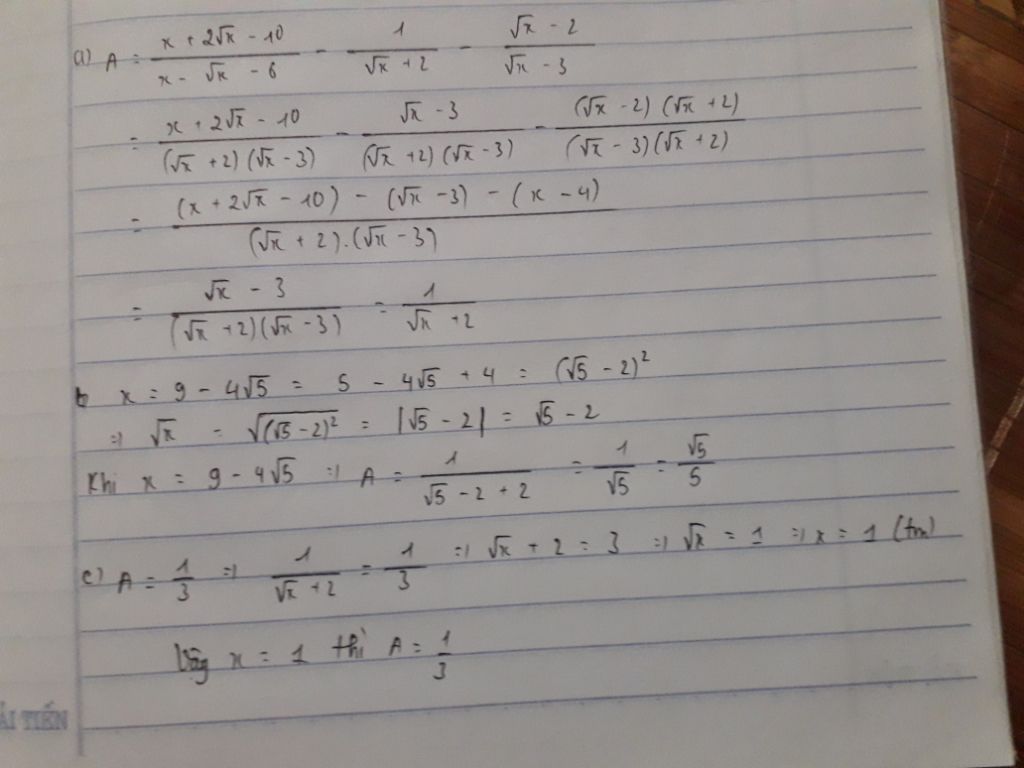 a) A = \frac{x + 2\sqrt{x} - 10}{x - \sqrt{x} - 6} - \frac{1}{\sqrt{x} + 2} - \frac{\sqrt{x} - 2}{\sqrt{x} - 3}
= \frac{x + 2\sqrt{x} - 10}{(\sqrt{x} + 2)(\sqrt{x} - 3)} - \frac{\sqrt{x} - 3}{(\sqrt{x} + 2)(\sqrt{x} - 3)} - \frac{(\sqrt{x} - 2)(\sqrt{x} + 2)}{(\sqrt{x} - 3)(\sqrt{x} + 2)}
= \frac{(x + 2\sqrt{x} - 10) - (\sqrt{x} - 3) - (x - 4)}{(\sqrt{x} + 2).(\sqrt{x} - 3)}
= \frac{\sqrt{x} - 3}{(\sqrt{x} + 2)(\sqrt{x} - 3)} = \frac{1}{\sqrt{x} + 2}
b x = 9 - 4\sqrt{5} = 5 - 4\sqrt{5} + 4 = (\sqrt{5} - 2)^2
=> \sqrt{x} = \sqrt{(\sqrt{5} - 2)^2} = |\sqrt{5} - 2| = \sqrt{5} - 2
Khi x = 9 - 4\sqrt{5} => A = \frac{1}{\sqrt{5} - 2 + 2} = \frac{1}{\sqrt{5}} = \frac{\sqrt{5}}{5}
c) A = \frac{1}{3} => \frac{1}{\sqrt{x} + 2} = \frac{1}{3} => \sqrt{x} + 2 = 3 => \sqrt{x} = 1 => x = 1 (tm)
Vậy x = 1 thì A = \frac{1}{3}
ẢI TIẾN